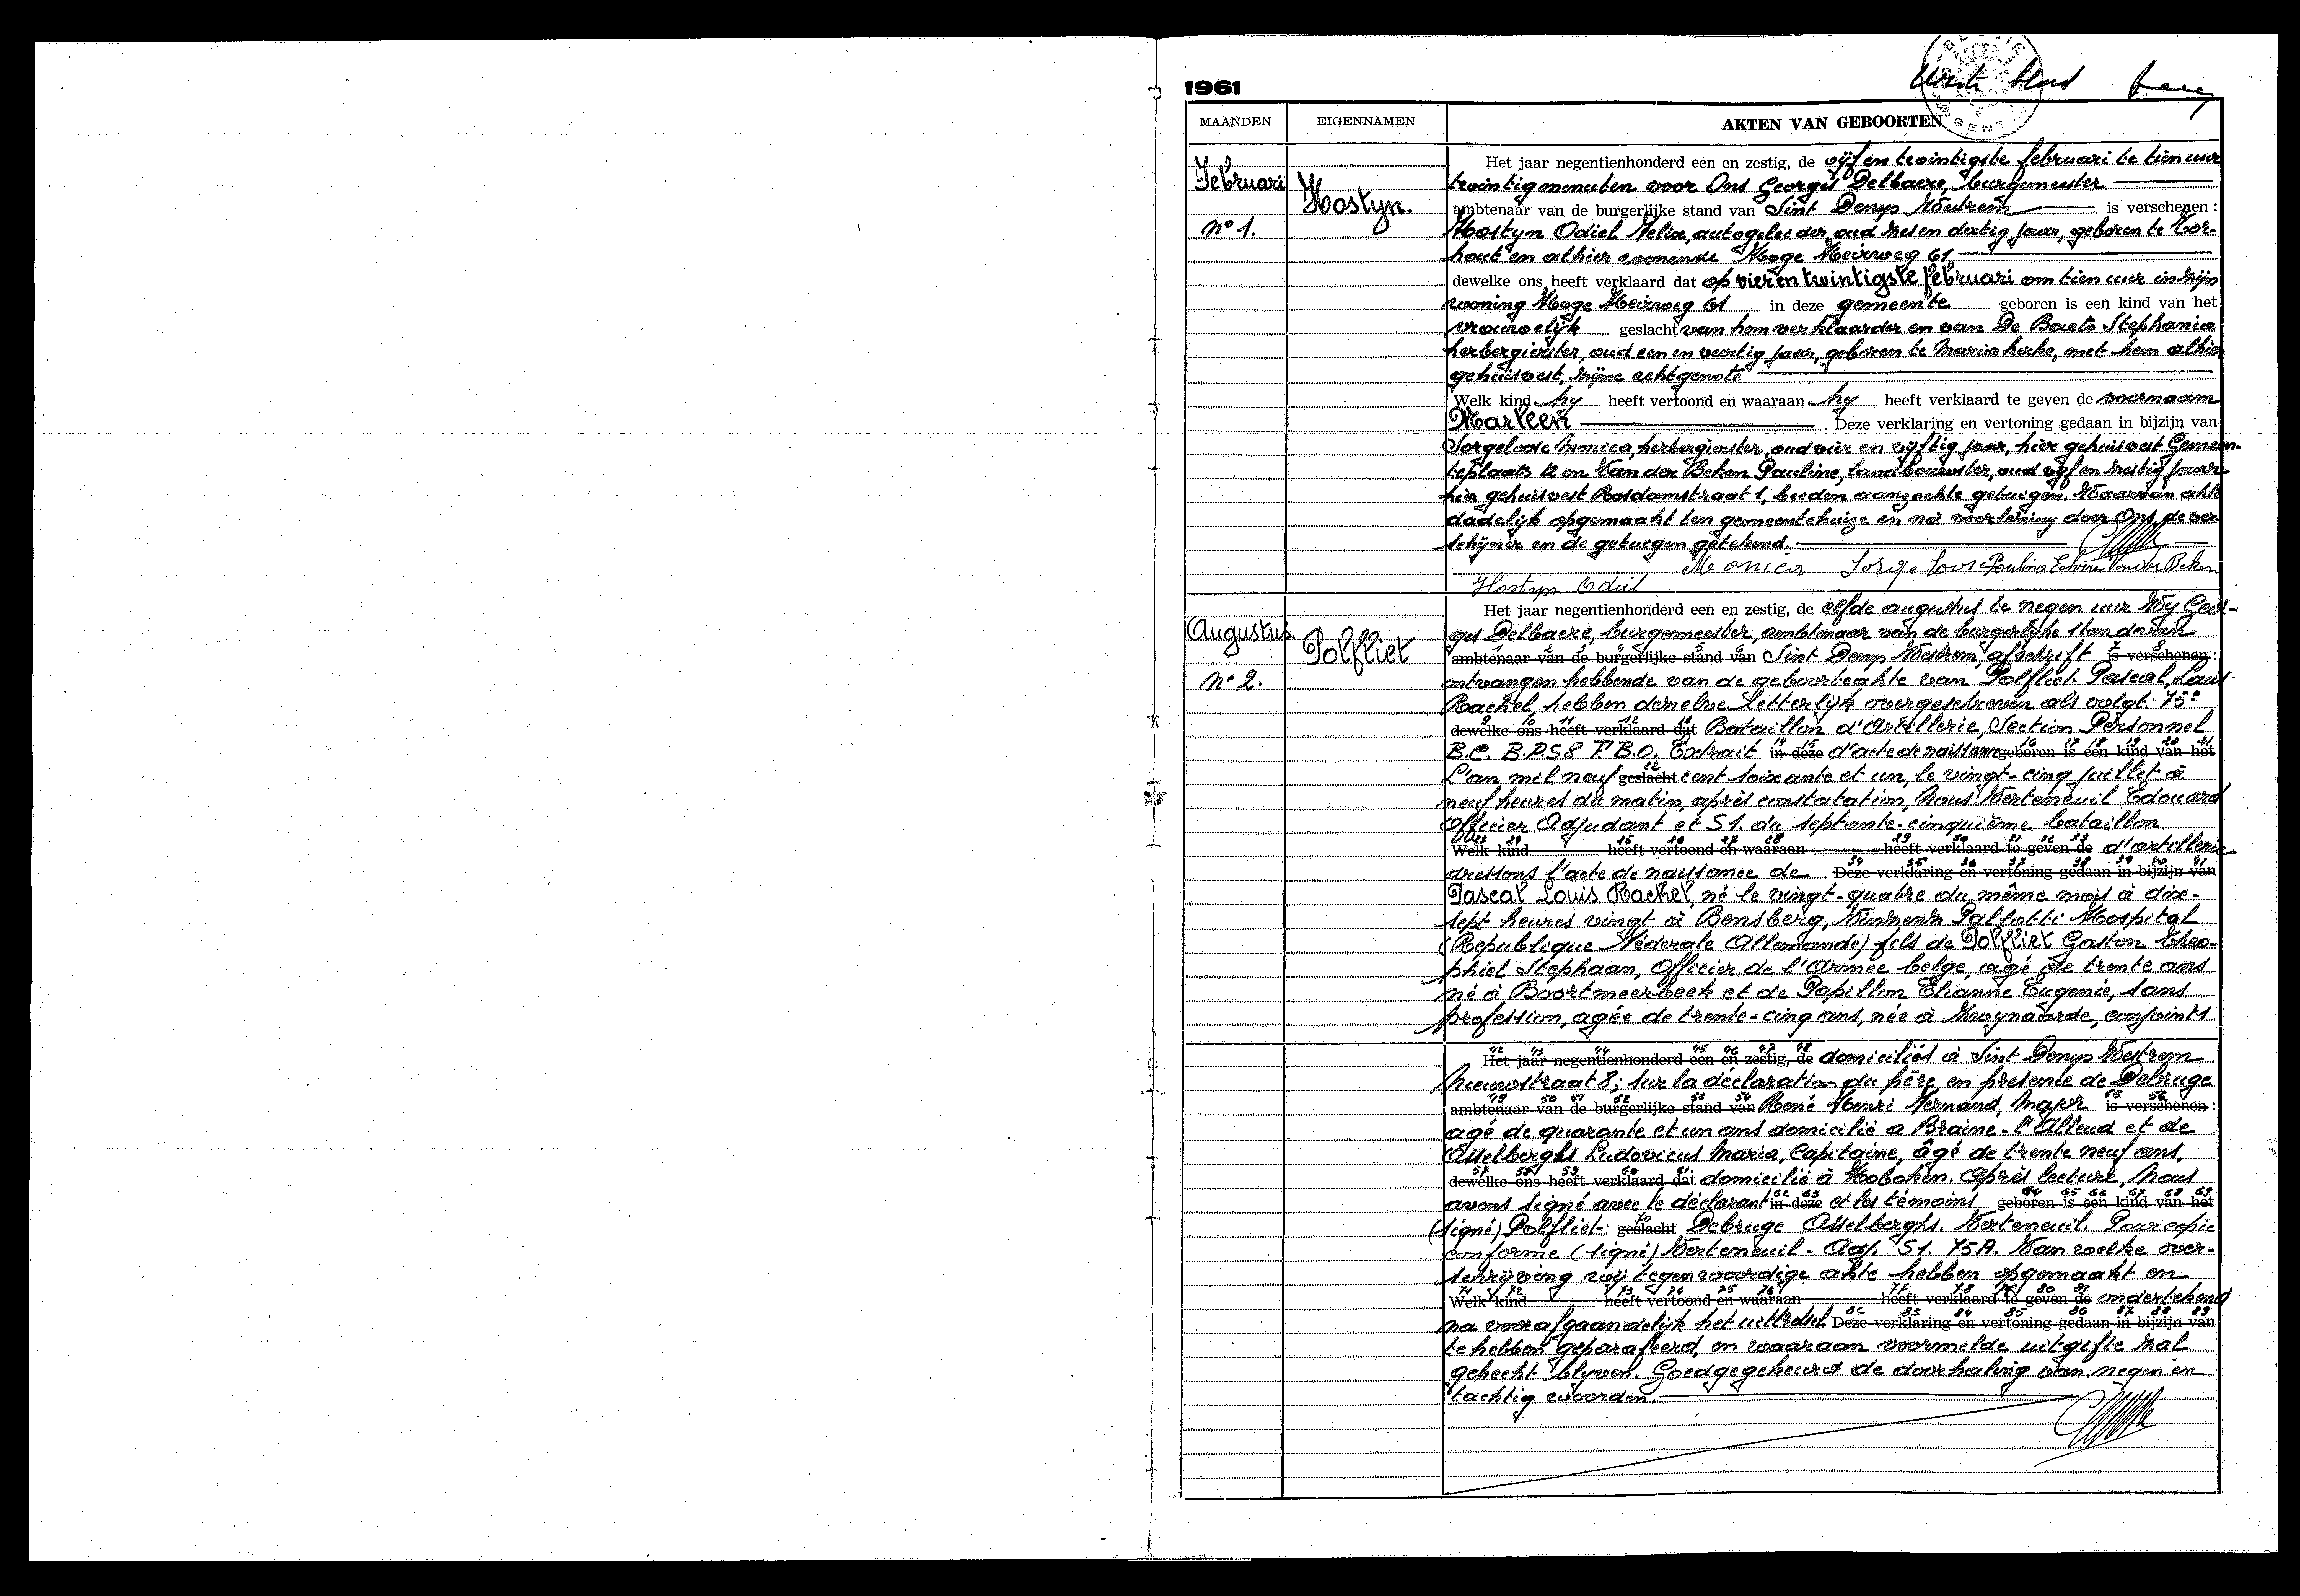 1961
MAANDEN EIGENNAMEN AKTEN VAN GEBOORTEN
Februari
n° 1.
Hostyn.
Het jaar negentienhonderd een en zestig, de vijf en twintigste februari te tien uur
twintig menuten voor Ons Georges Delbaere, burgemeester
ambtenaar van de burgerlijke stand van Sint Denys Westrem is verschenen :
Hostyn Odiel Felix, autogeleider, oud zes en dertig jaar, geboren te Tor-
hout en alhier wonende Hoge Heirweg 61
dewelke ons heeft verklaard dat op vier en twintigste februari om tien uur in zijn
woning Hoge Heirweg 61 in deze gemeente geboren is een kind van het
vrouwelijk geslacht van hem verklaarder en van De Baets Stephanie
herbergierster, oud een en veertig jaar, geboren te Mariakerke, met hem alhier
gehuisvest, zijne echtgenote
Welk kind hy heeft vertoond en waaraan hy heeft verklaard te geven de voornaam
Marleen . Deze verklaring en vertoning gedaan in bijzijn van
Sorgeloose Monica, herbergierster, oud vier en vijftig jaar, hier gehuisvest Gemeen-
teplaats 12 en Van der Beken Pauline, landbouwster, oud vijf en zestig jaar
hier gehuisvest Rosdamstraat 1, beiden aanzochte getuigen. Waarvan akte
dadelijk opgemaakt ten gemeentehuize en na voorlezing door Ons, de ver-
schijner en de getuigen getekend.
Monica Sorgeloose Paulina Van der Beken
Hostyn Odiel
Augustus
n° 2.
Polfliet
Het jaar negentienhonderd een en zestig, de elfde augustus te negen uur Wy Geor-
ges Delbaere, burgemeester, ambtenaar van de burgerlijke stand van
ambtenaar van de burgerlijke stand van Sint Denys Westrem, afschrift is verschenen :
ontvangen hebbende van de geboorteakte van Polfliet Pascal, Louis
Rachel, hebben denzelve letterlijk overgeschreven als volgt: 75e
dewelke ons heeft verklaard dat Bataillon d'Artillerie, Section Personnel
B.C. B.P.S 8 F.B.O. Extrait in deze d'acte de naissance geboren is een kind van het
L'an mil neuf geslacht cent soixante et un, le vingt-cinq juillet à
neuf heures du matin, après constatation, Nous Verteneuil Edouard
Officier Adjudant et S1. du septante-cinquième bataillon
Welk kind heeft vertoond en waaraan heeft verklaard te geven de d'artillerie
dressons l'acte de naissance de . Deze verklaring en vertoning gedaan in bijzijn van
Pascal Louis Rachel, né le vingt-quatre du même mois à dix-
sept heures vingt à Bensberg, Vinzenz Pallotti Hospital
(Republique Féderale Allemande) fils de Polfliet Gaston Theo-
phiel Stephaan, Officier de l'Armee belge, agé de trente ans
né à Boortmeerbeek et de Papillon Elianne Eugenie, sans
profession, agée de trente-cinq ans, née à Zwynaarde, conjoints
Het jaar negentienhonderd een en zestig, de domiciliés à Sint Denys Westrem
Nieuwstraat 8; sur la déclaration du père en presence de Debruge
ambtenaar van de burgerlijke stand van René Henri Fernand, Major is verschenen :
agé de quarante et un ans domicilié a Braine-l'Alleud et de
Asselberghs Ludovicus Maria, Capitaine, âgé de trente neuf ans,
dewelke ons heeft verklaard dat domicilié à Hoboken. Après lecture, Nous
avons signé avec le déclarant in deze et les témoins geboren is een kind van het
(signé) Polfliet geslacht Debruge Asselberghs. Verteneuil. Pour copie
conforme (signé) Verteneuil. Adj. S1. 75A. Van welke over-
schrijving wij tegenwoordige akte hebben opgemaakt en
Welk kind heeft vertoond en waaraan heeft verklaard te geven de ondertekend
na voorafgaandelijk het uittreksel Deze verklaring en vertoning gedaan in bijzijn van
te hebben geparafeerd, en waaraan voormelde uitgifte zal
gehecht blyven. Goedgegekeurd de doorhaling van negen en
tachtig woorden.